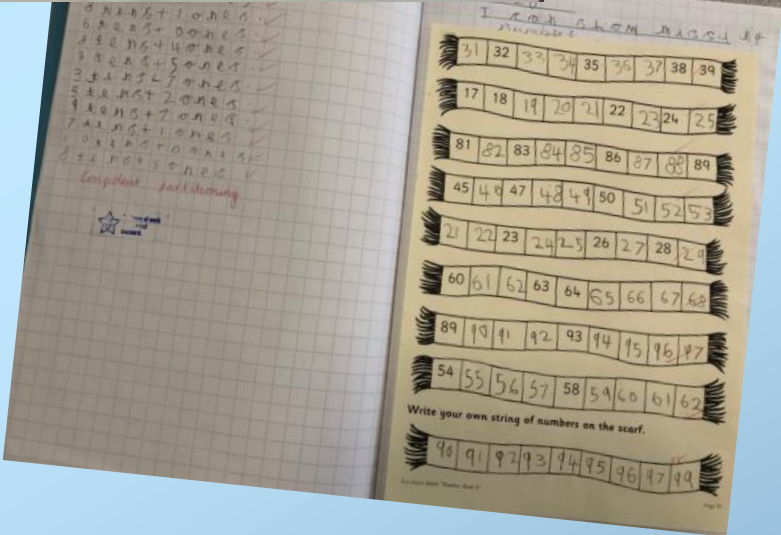 6 tens + 0 ones
4 tens + 4 ones
3 tens + 5 ones
3 tens + 7 ones
5 tens + 2 ones
9 tens + 7 ones
7 tens + 1 ones
8 tens + 5 ones
Confident partitioning
I can show
numbers
31 32 33 34 35 36 37 38 39
17 18 19 20 21 22 23 24 25
81 82 83 84 85 86 87 88 89
45 46 47 48 49 50 51 52 53
21 22 23 24 25 26 27 28 29
60 61 62 63 64 65 66 67 68
89 90 91 92 93 94 95 96 97
54 55 56 57 58 59 60 61 62
Write your own string of numbers on the scarf.
90 91 92 93 94 95 96 97 99